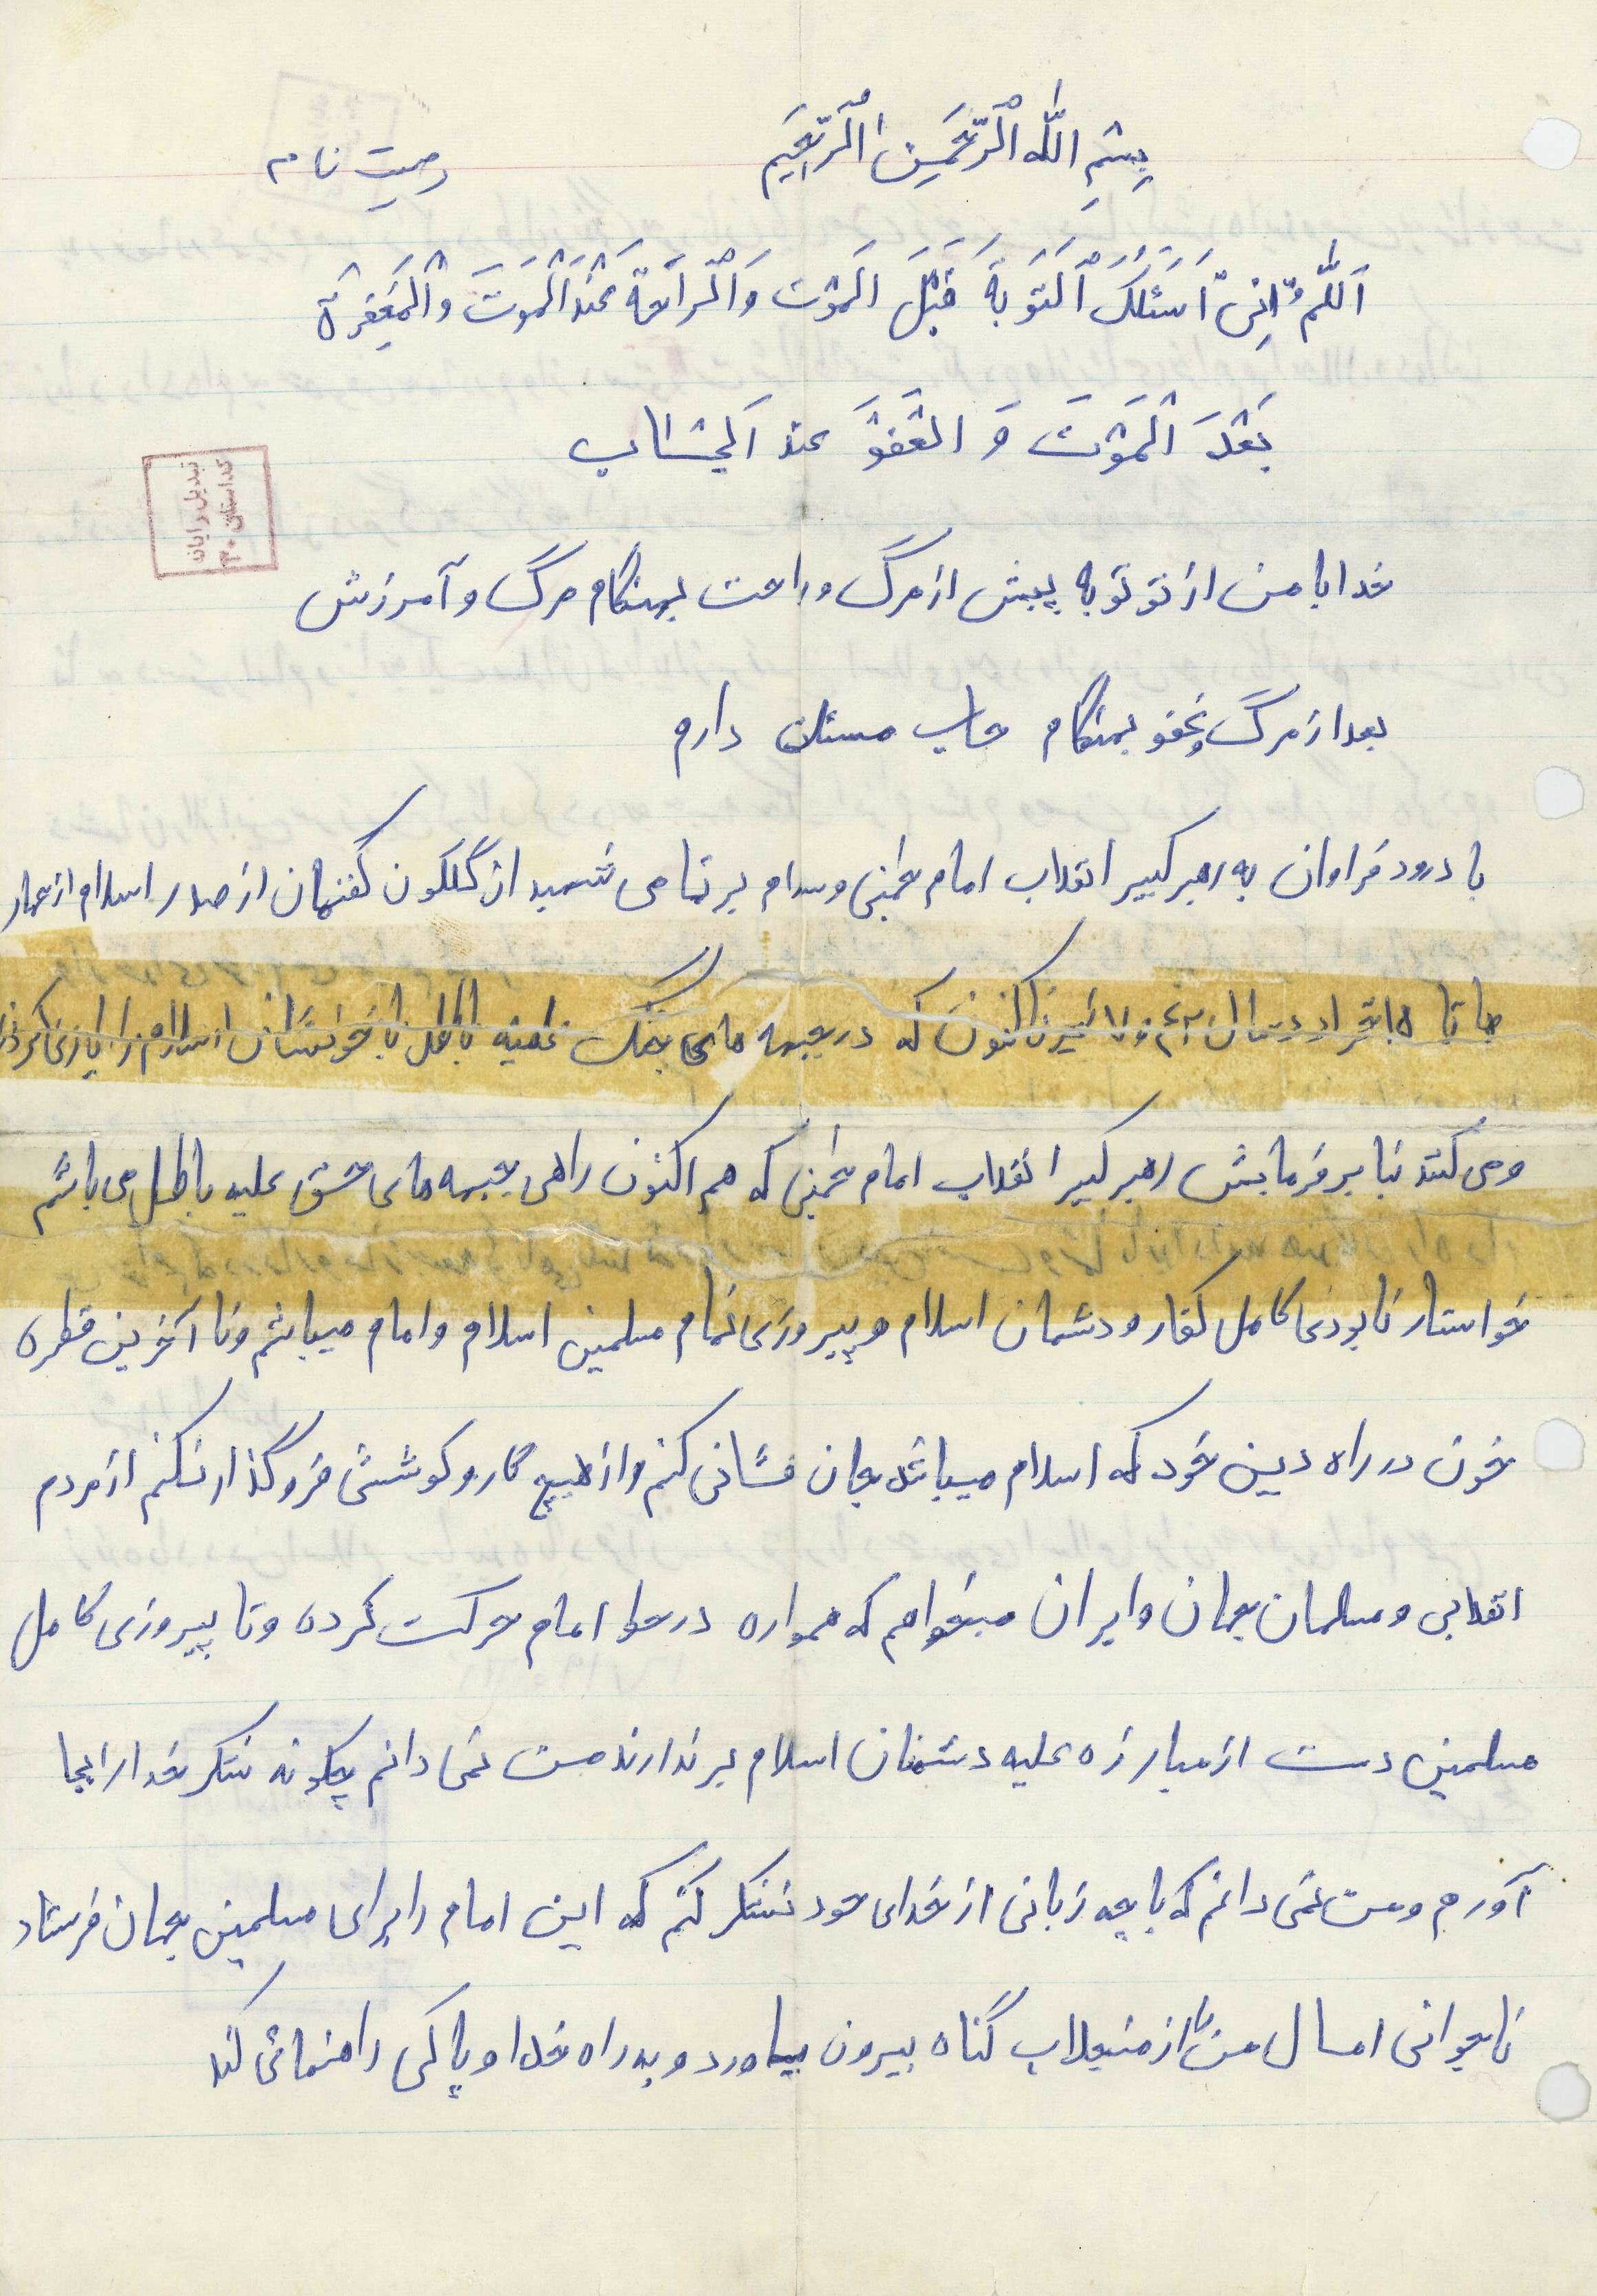 بِسْمِ اللّٰهِ الْرَّحْمَنِ الْرَّحِيمِ
وصیت نامه
اَللّٰهُمَّ اِنّىِ اَسْئَلُكَ اْلتَوبَةَ قَبْلَ اَلمَوْت وَاَلْراَحَةَ عَنْدَاَلْمَوتَ وَاْلمَغِفرَة
بَعْدَ اَلْمَوْتَ وَ العَفْوَ عند اَلحِسْابِ
تبدیل رایانه
کد استان ۳۰
خدایا من از تو توبه پیش از مرگ و راحت بهنگام مرگ و آمرزش
بعد از مرگ و عفو بهنگام حساب مسئلت دارم
با درود فراوان به رهبر کبیر انقلاب امام خمینی و سلام بر تمامی شهیدان گلگون کفنمان از صدر اسلام از
تا اکنون که در جبهه های جنگ علیه باطل با خونشان اسلام را یاری کردند
و می کنند بنا بر فرمایش رهبر کبیر انقلاب امام خمینی که هم اکنون راهی جبهه های حق علیه باطل می باشم
خواستار نابودی کامل کفار و دشمنان اسلام و پیروزی تمام مسلمین اسلام و امام میباشم و تا آخرین قطره
خون در راه دین خود که اسلام میباشد جان فشانی کنم و از هیچ کار و کوششی فروگذار نکنم از مردم
انقلابی و مسلمان جهان و ایران میخواهم که همواره در خط امام حرکت کرده و تا پیروزی کامل
مسلمین دست از مبارزه علیه دشمنان اسلام برندارند من نمی دانم چگونه شکر خدا را بجا
آورم و من نمی دانم که با چه زبانی از خدای خود تشکر کنم که این امام را برای مسلمین جهان فرستاد
تا جوانی امسال من را از منجلاب گناه بیرون بیاورد و به راه خدا و پاکی راهنمائی کند